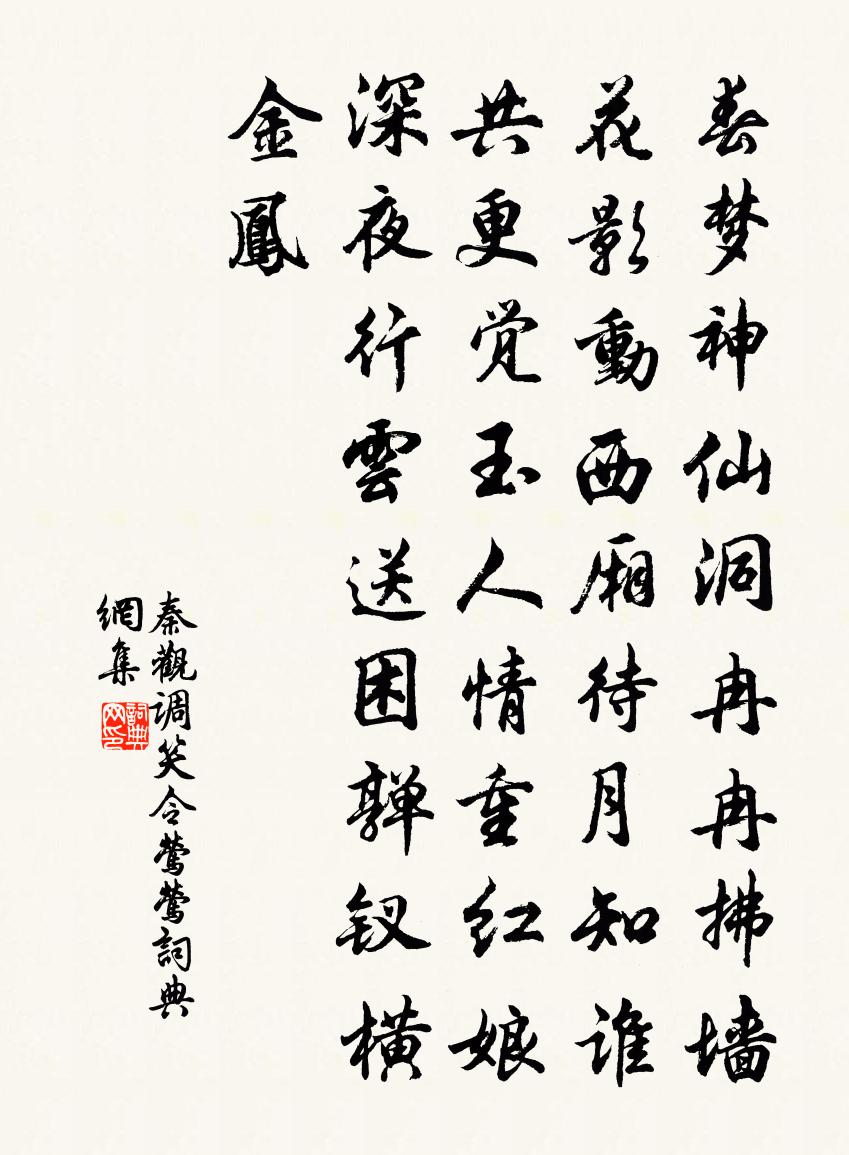 春梦神仙洞冉冉拂墙
花影動西厢待月知谁
共更觉玉人情重红娘
深夜行雲送困亸钗横
金鳳
秦觀调笑令鶯鶯詞典
網集
詞典
网印